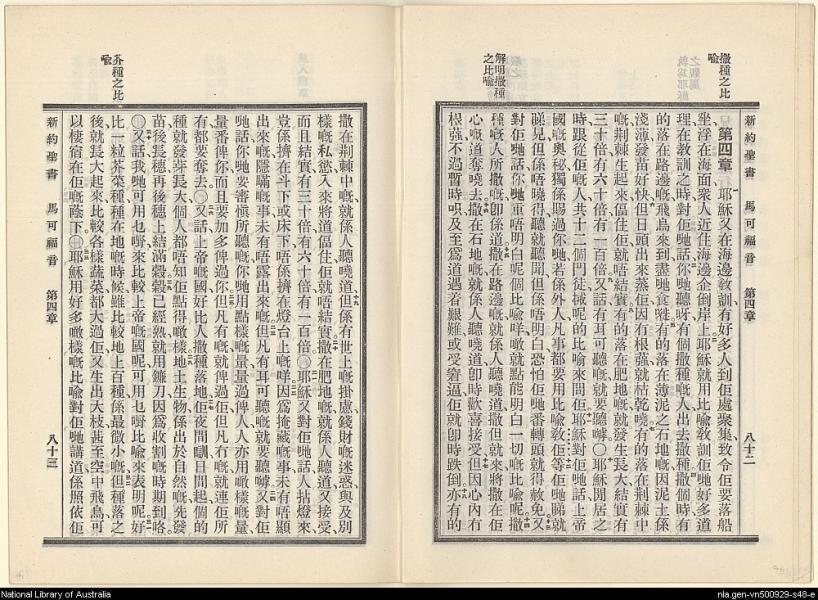 撒種之比
喻
解明撒種
之比喻
新約聖書　馬可福音　第四章　八十二
第四章　耶穌又在海邊敎訓有好多人到佢處聚集致令佢要落船
坐浮在海面衆人近住海邊企倒岸上耶穌就用比喻敎訓佢哋好多道
理在敎訓之時對佢哋話你哋聽呀有個撒種嘅人出去撒種撒個時有
的落在路邊嘅飛鳥來到盡哋食曉有的落在薄泥之石地嘅因泥土係
淺薄發苗好快但日頭出來蒸佢因冇根强就枯乾曉有的落在荆棘中
嘅荆棘生起來偪住佢就唔結實有的落在肥地嘅就發生長大結實有
三十倍有六十倍有一百倍又話有耳可聽嘅就要聽嚹〇耶穌閒居之
時跟從佢嘅人共十二個門徒攞呢的比喻來問佢耶穌對佢哋話上帝
國嘅奧秘獨係賜過你哋若係外人凡事都要用比喻敎佢等佢哋睇就
睇見但係唔曉得聽就聽聞但係唔明白恐怕佢哋番轉頭就得赦免又
對佢哋話你哋重唔明白呢個比喻咩噉就點能明白一切嘅比喻呢撒
種嘅人所撒嘅卽係道撒在路邊嘅就係人聽曉道撒但就來將撒在佢
心嘅道奪曉去撒在石地嘅就係人聽曉道卽時歡喜接受但因心內冇
根强不過暫時呮及至爲道遇着艱難或受窘逼佢就卽時跌倒亦有的
芥種之比
喻
新約聖書　馬可福音　第四章　八十三
撒在荆棘中嘅就係人聽曉道但係有世上嘅掛慮錢財嘅迷惑與及別
樣嘅私慾入來將道偪住佢就唔結實撒在肥地嘅就係人聽道又接受
而且結實有三十倍有六十倍有一百倍〇耶穌又對佢哋話人拈燈來
豈係擠在斗下或床下唔係擠在燈台上嘅咩因爲掩藏嘅事未有唔顯
出來嘅隱瞞嘅事未有唔露出來嘅但凡有耳可聽嘅就要聽嚹又對佢
哋話你哋要審愼所聽嘅你哋用點樣嘅量量過俾人人亦用噉樣嘅量
量番俾你而且要加多俾過你但凡有嘅就俾過佢但凡冇嘅就連佢所
有都要奪去〇又話上帝嘅國好比人撒種落地佢夜間瞓日間起個的
種就發芽長大個人都唔知佢點得噉樣地土生物係出於自然嘅先發
苗後長穗再後穗上結滿穀穀已經熟就用鐮刀因爲收割嘅時期到咯
〇又話我哋可用乜嘢來比較上帝嘅國呢可用乜嘢比喻來表明呢好
比一粒芥菜種種在地嘅時候雖比較地上百種係最微小嘅但種落之
後就長大起來比較各樣蔬菜都大過佢又生出大枝甚至空中飛鳥可
以棲宿在佢嘅蔭下〇耶穌用好多噉樣嘅比喻對佢哋講道係照依佢
National Library of Australia
nla.gen-vn500929-s48-e